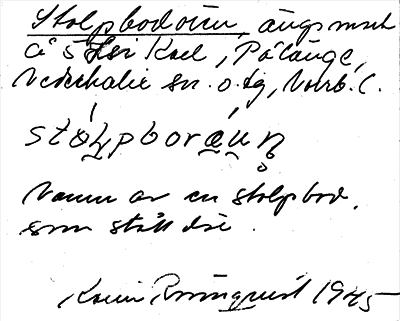 Stolpbodören, ängsmark
å S Lei Karl, Pålänge,
Nederkalix sn. o. tg, Norrb. l.
stólpboráun
Namn av en stolpbod,
som stått där.
Karin Rönnquist 1945